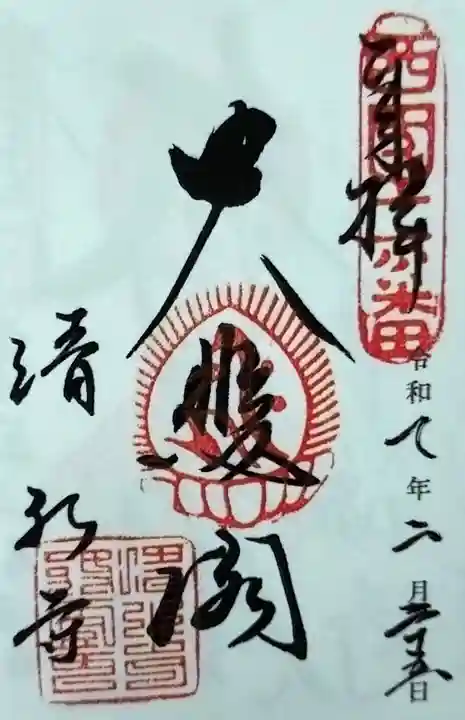 奉拝
西国十六番
令和 年二月二十五日
大悲閣
清水寺